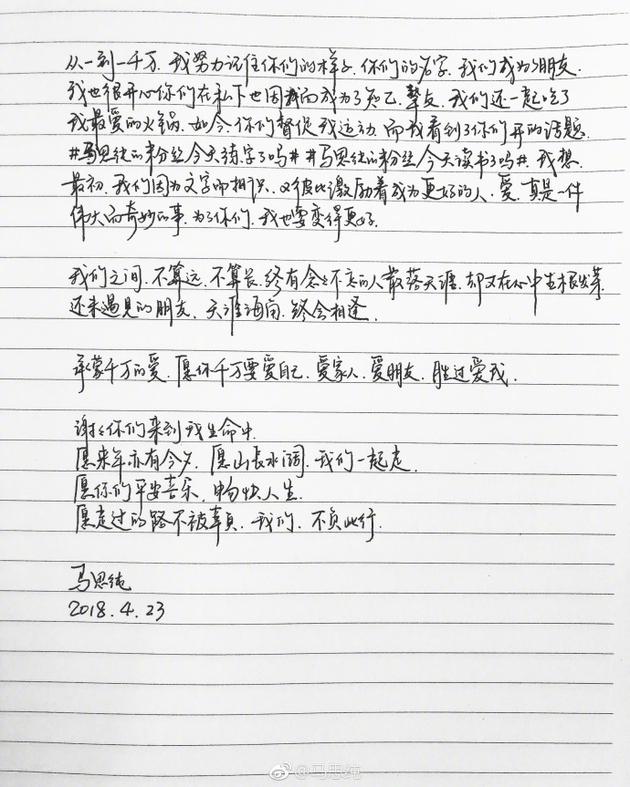 从一到一千万.我努力记住你们的样子.你们的名字.我们成为了朋友.
我也很开心你们在私下也因我而成为了知己.挚友.我们还一起吃了
我最爱的火锅.如今.你们督促我运动.而我看到了你们开的话题.
#马思纯的粉丝今天练字了吗##马思纯的粉丝今天读书了吗#.我想.
最初.我们因为文字而相识.又彼此激励着成为更好的人.爱.真是一件
伟大而奇妙的事.为了你们.我也要变得更好.
我们之间.不算远.不算长.终有念念不忘的人散落天涯.却又在心中生根发芽.
还未遇见的朋友.天涯海角.终会相逢.
承蒙千万的爱.愿你千万要爱自己.爱家人.爱朋友.胜过爱我.
谢谢你们来到我生命中.
愿来年亦有今夕.愿山长水阔.我们一起走.
愿你们平安喜乐.畅快人生.
愿走过的路不被辜负.我们.不负此行.
马思纯
2018.4.23
@马思纯